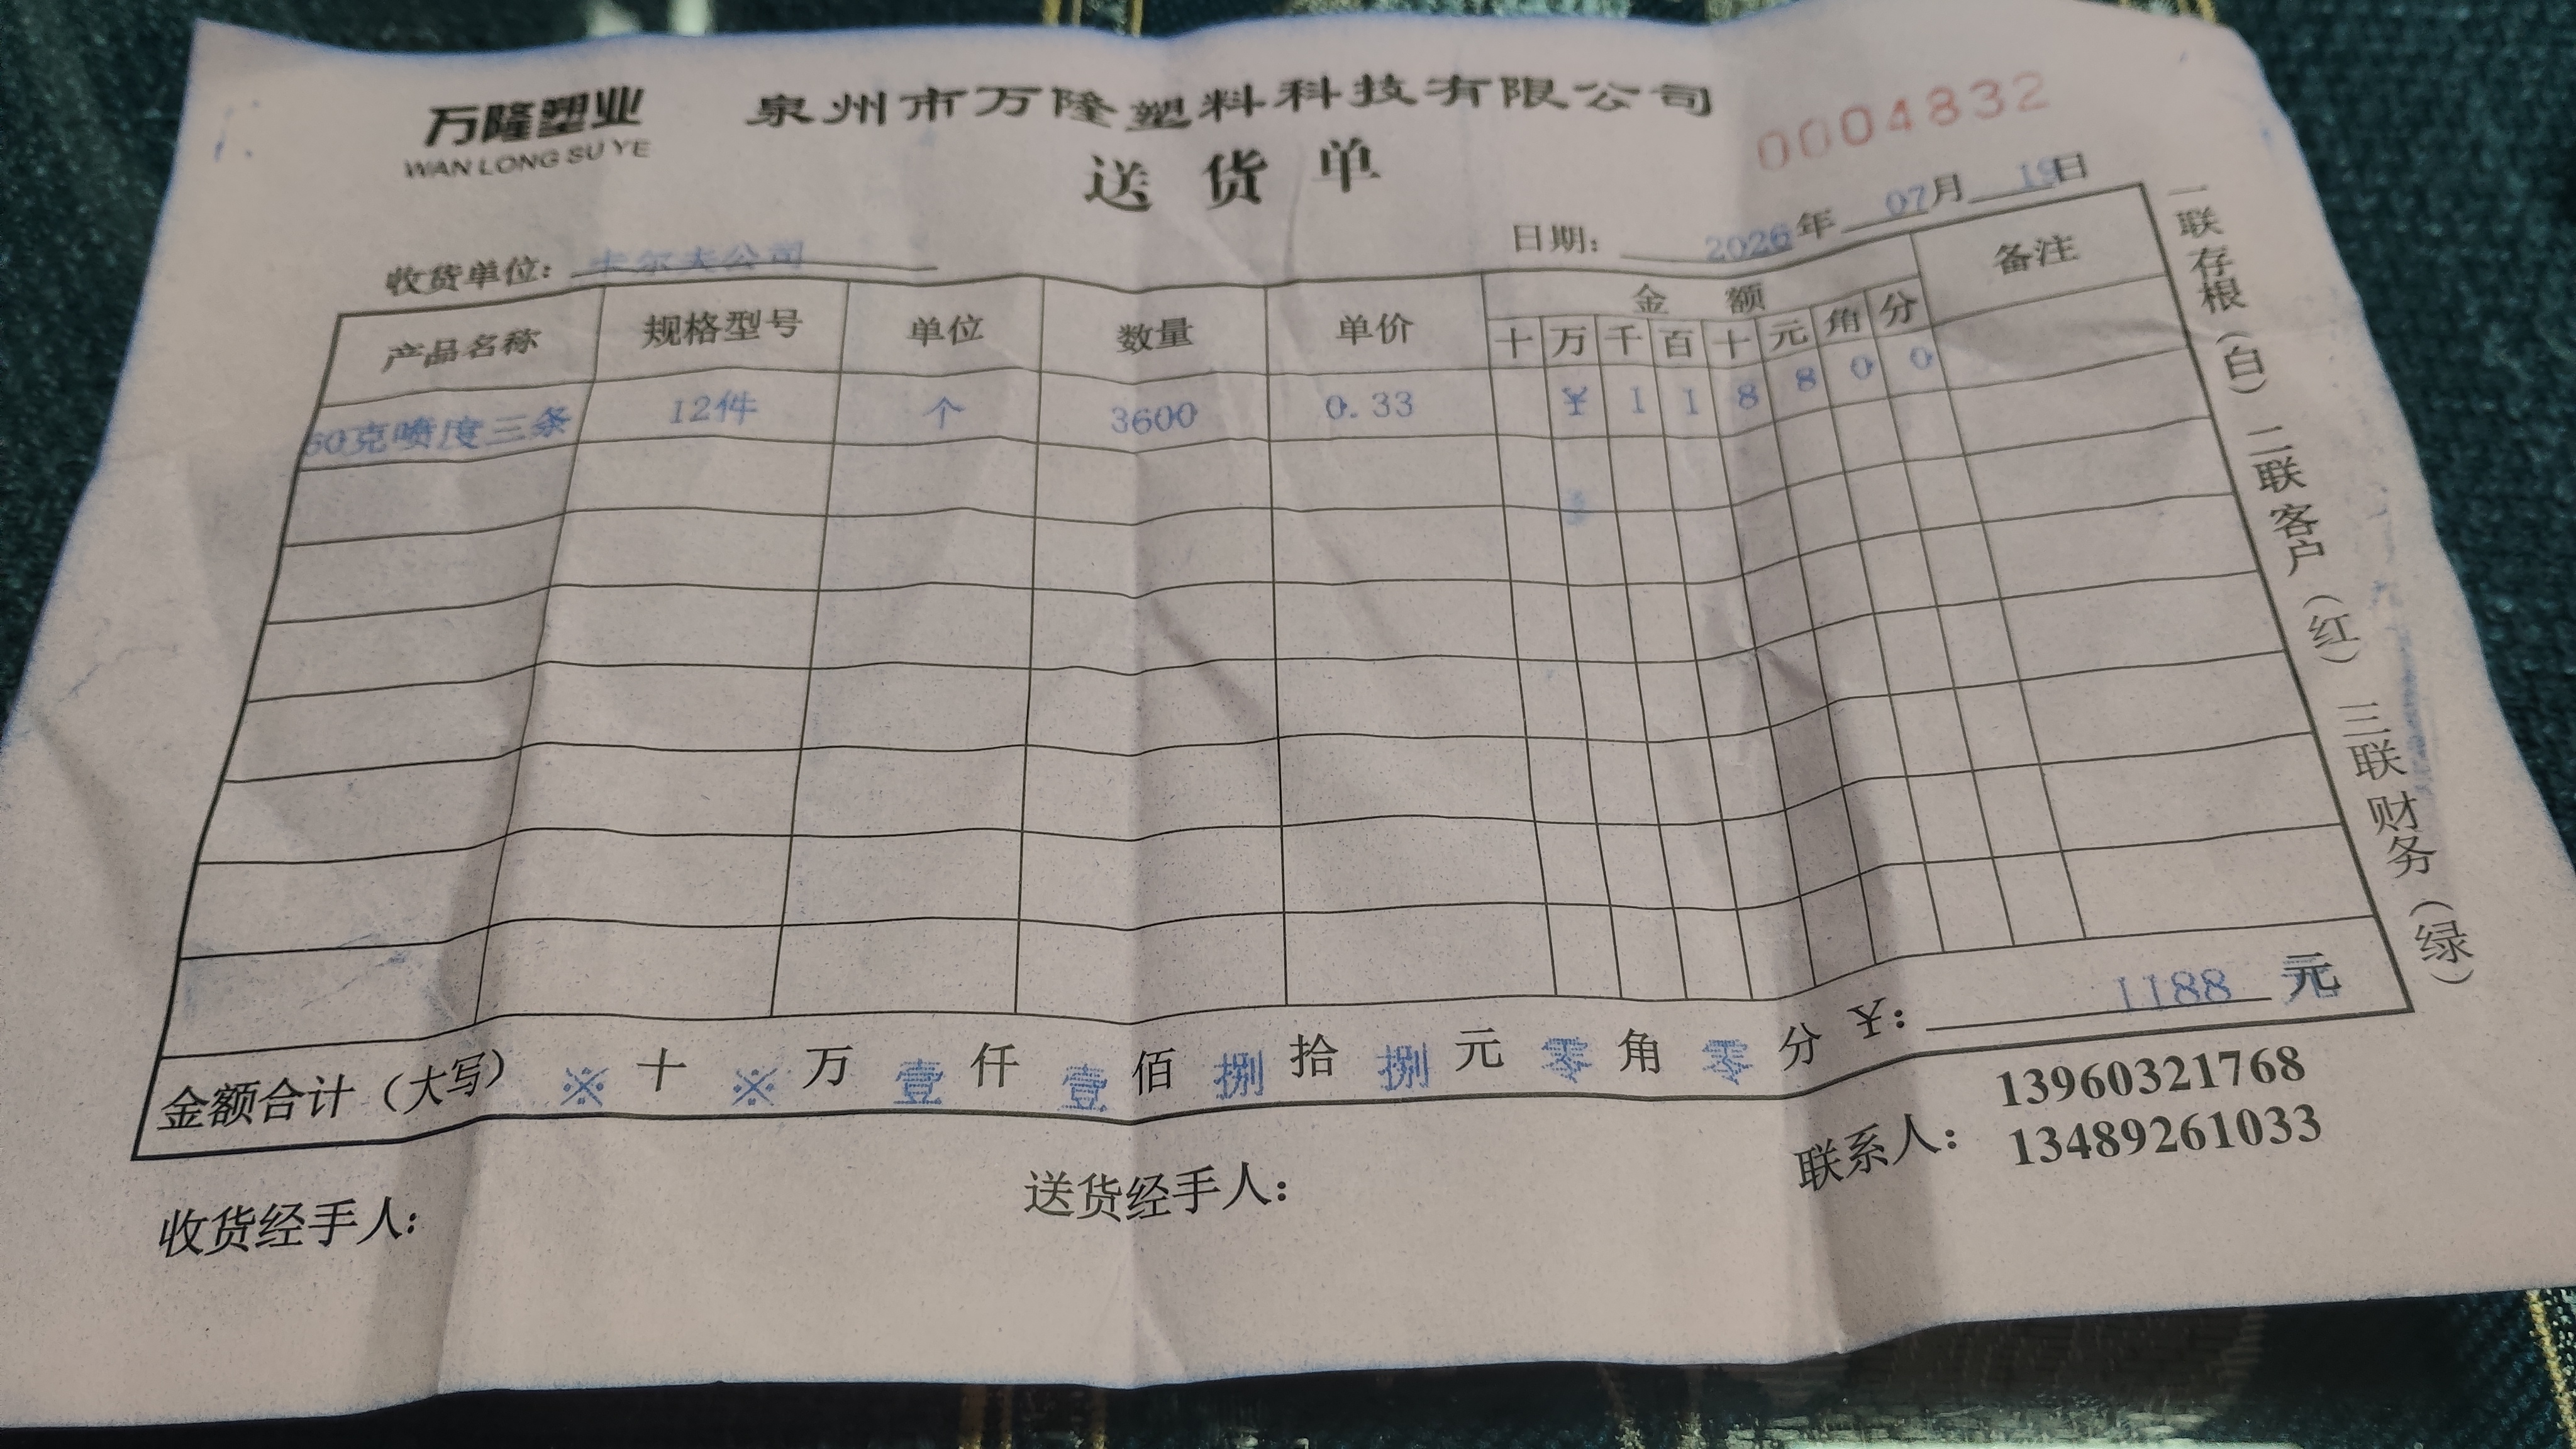 万隆塑业
WAN LONG SU YE
泉州市万隆塑料科技有限公司
送货单
0004832
收货单位：卡尔夫公司
日期：2026年07月19日
产品名称 规格型号 单位 数量 单价 金额 备注
十 万 千 百 十 元 角 分
60克喷度三条 12件 个 3600 0.33 ¥ 1 1 8 8 0 0
金额合计（大写） ※ 十 ※ 万 壹 仟 壹 佰 捌 拾 捌 元 零 角 零 分 ¥：1188 元
收货经手人：
送货经手人：
联系人：13960321768
13489261033
一联存根（白） 二联客户（红） 三联财务（绿）